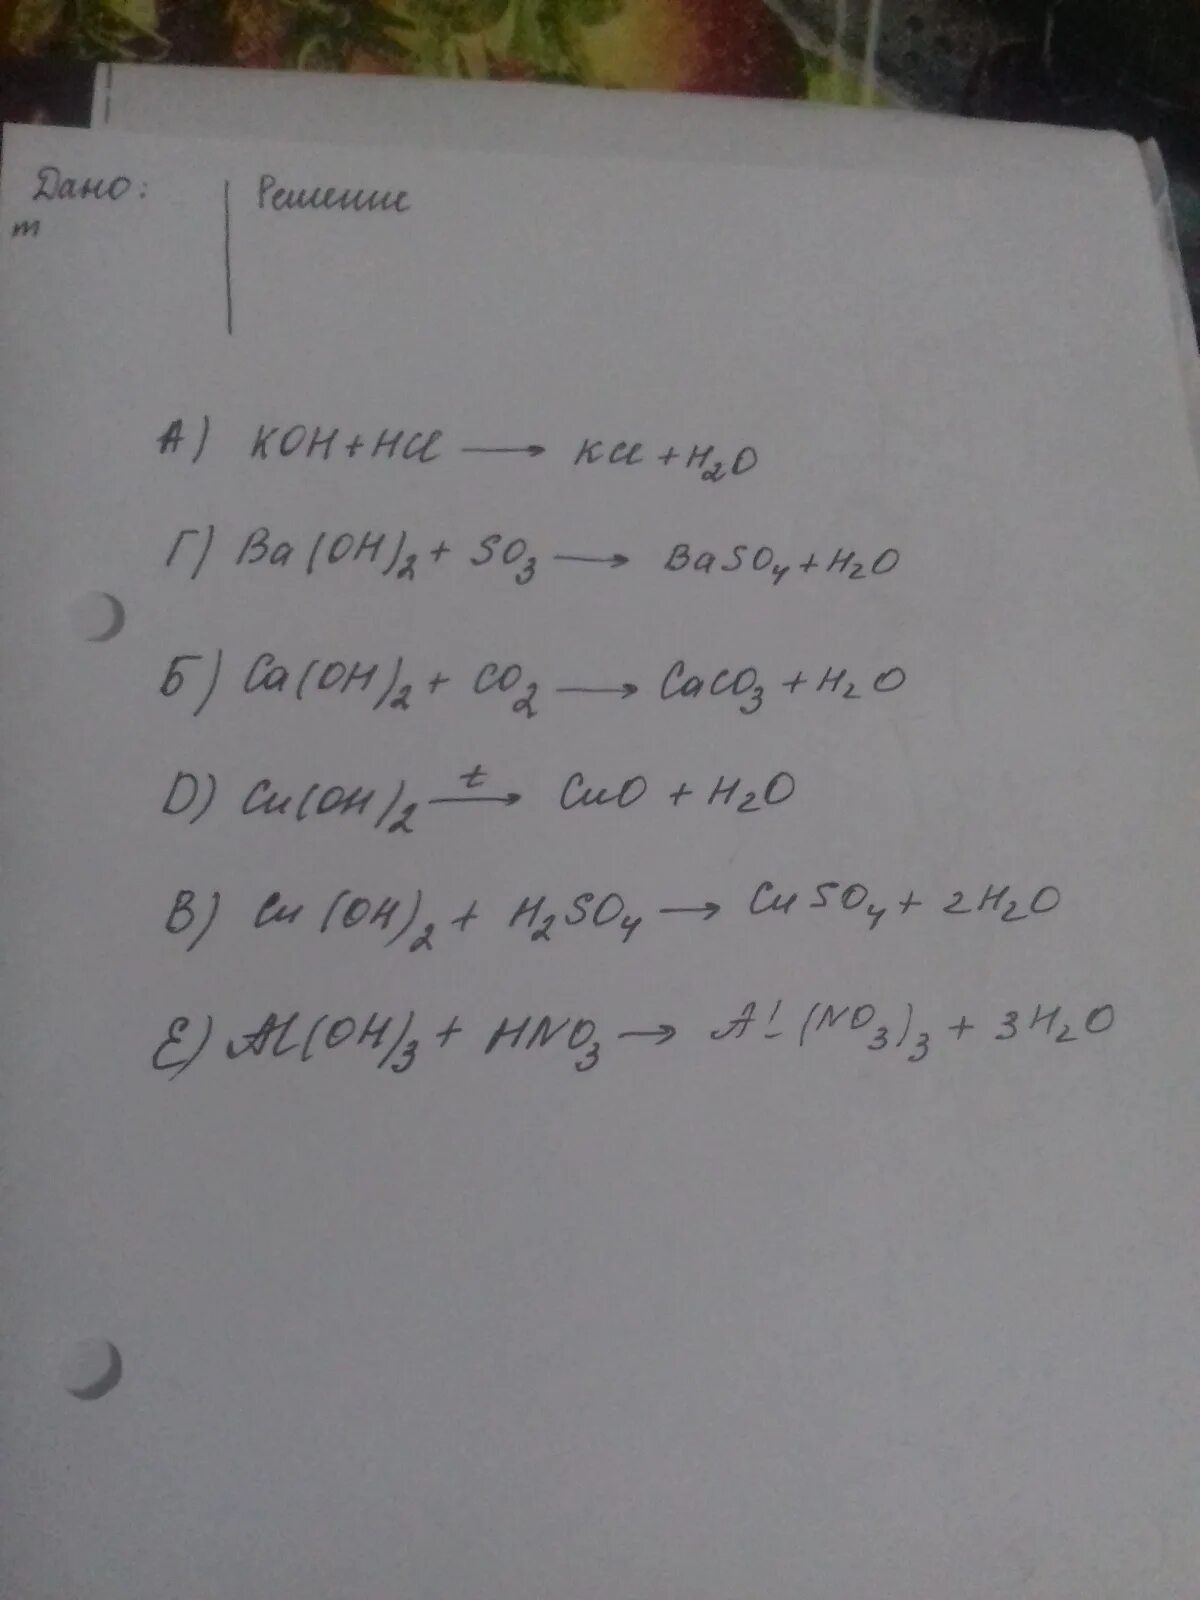 Дано: Решение
m
А) KOH + HCl ⟶ KCl + H₂O
Г) Ba(OH)₂ + SO₃ ⟶ BaSO₄ + H₂O
Б) Ca(OH)₂ + CO₂ ⟶ CaCO₃ + H₂O
D) Cu(OH)₂ —t→ CuO + H₂O
В) Cu(OH)₂ + H₂SO₄ ⟶ CuSO₄ + 2H₂O
Е) Al(OH)₃ + HNO₃ ⟶ Al(NO₃)₃ + 3H₂O